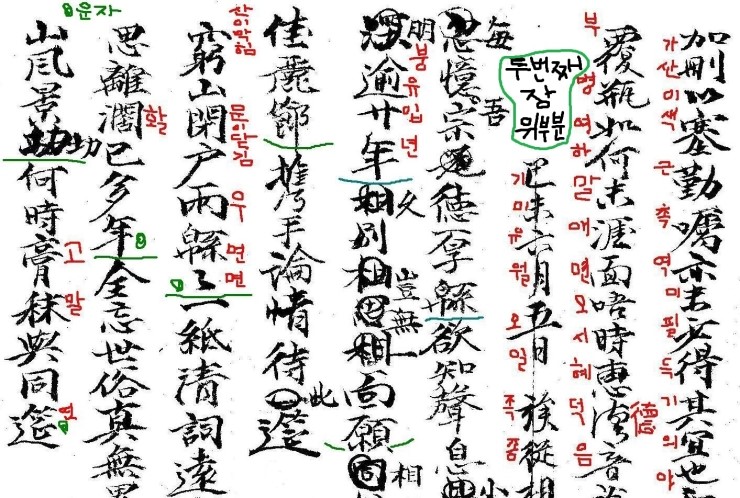 加刪以塞勤囑亦未必得其宜也
가산미색 근촉 역미필득기의야
覆瓶如何未涯面唔時惠德音
부병여하말애면오서혜덕음
德
두번째
장
위부분
己未六月五日 族從
기미유월오일 족종
每吾
思憶宗德厚緜欲知聲息
明
逾廿年相別相思相向願同
붕유입년
久 豈無 相
佳麗節攜手論情待 筵
此
窮山閉戶雨緜々一紙清詞遠
산이막힘 문이닫김 우면면
思離濶已多年全忘世俗真無
활
운자
山風景助何時膏秣與同筵
고말 연